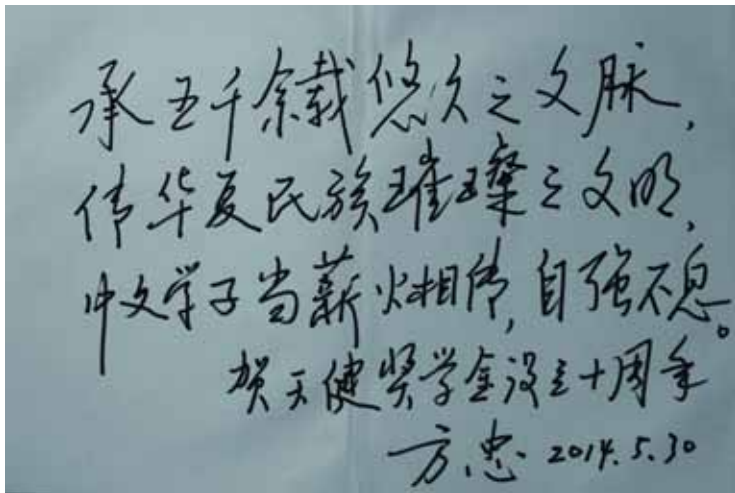 承五千余载悠久之文脉,
传华夏民族璀璨之文明,
中文学子当薪火相传,自强不息。
贺天健奖学金设立十周年
方忠 2014.5.30